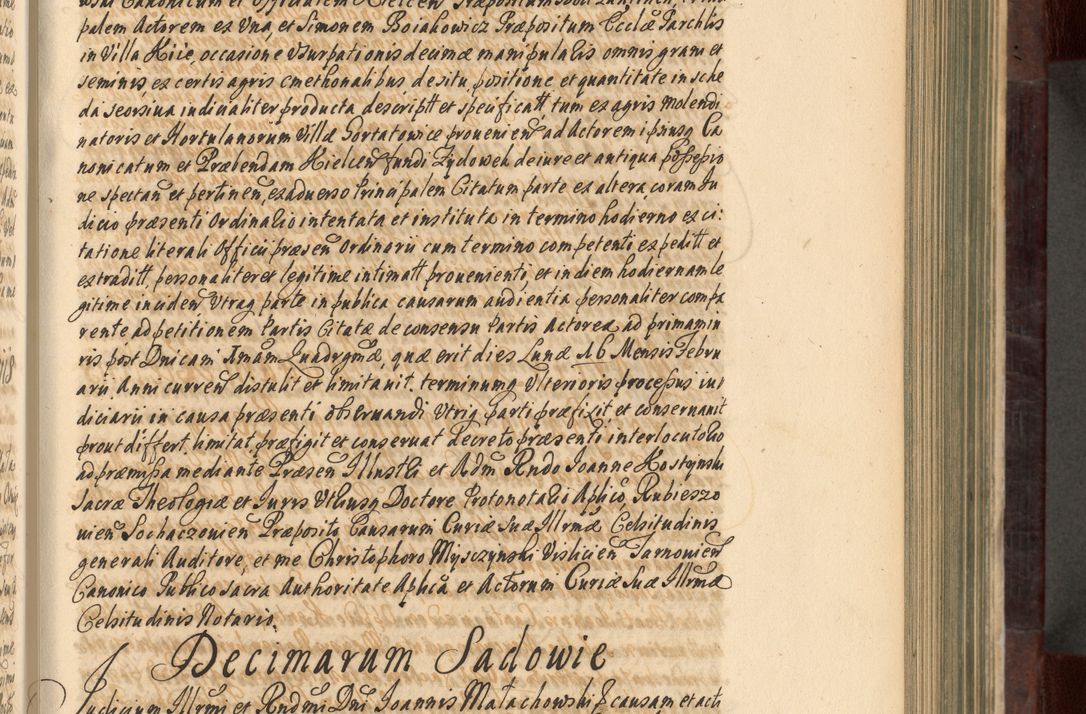 palem Actorem ex Una, et Simonem Boiakowicz Præpositum Ecclæ Parchlis
in Villa Kiie, occasione Usurpationis decimæ manipulalis omnis grani et
seminis ex certis agris cmethonalibus de situ, positione et quantitate in sche
da seorsiva iudicialiter producta descriptt et specificatt tum ex agris Molendi
natoris et Hortulanorum Villæ Sortatowice prouenien̄ ad Actorem ipsiusq Ca
nonicatum et Præbendam Kielcen̄ fundi Zydoweh de iure et antiqua possessio
ne spectan̄ et pertinen̄, ex aduerso Principalem Citatum parte ex altera, coram Ju
dicio præsenti Ordinalio intentata et instituta in termino hodierno ex ci:
tatione literali Officii præsen̄ Ordinorii cum termino competenti expeditt et
extraditt, personaliteret legitime intimatt prouenienti, et in diem hodiernam le
gitime inciden̄ Utraq parte in publica causarum audientia personaliter compa
rente ad petitionem Partis Citatæ de consensu Partis Actoreæ ad primam iu
ris post Dnicam Imam Quadrgmæ, quæ erit dies Lunæ 16 Mensis Febru
arii Anni curren̄ distulit et limitauit. terminumq Ulterioris processus iu
diciarii in causa præsenti obseruandi Utriq parti præfixit et conseruauit
prout differt, limitat, præfigit et conseruat decreto præsenti interlocutolio
ad præmissa mediante Præsen̄ Illustli et Adm̄ Rndo Joanne Kostynski
Sacræ Theologiæ et Juris Uthusq Doctore Protonotalio Aplico Rubieszo
uien̄ Sochaczouien̄ Præposito Causarum Curiæ Suæ Illrmæ Celsitudinis
generali Auditore, et me Christophoro Mysczynski Vislicien̄ Tarnouien̄
Canonico Publico Sacra Authoritate Aplica et Actorum Curiæ Suæ Illrmæ
Celsitudinis Notario.
Decimarum Sadowie
Judicium Illrmi et Rndmi Dni Joannis Małachowski P causam et acti